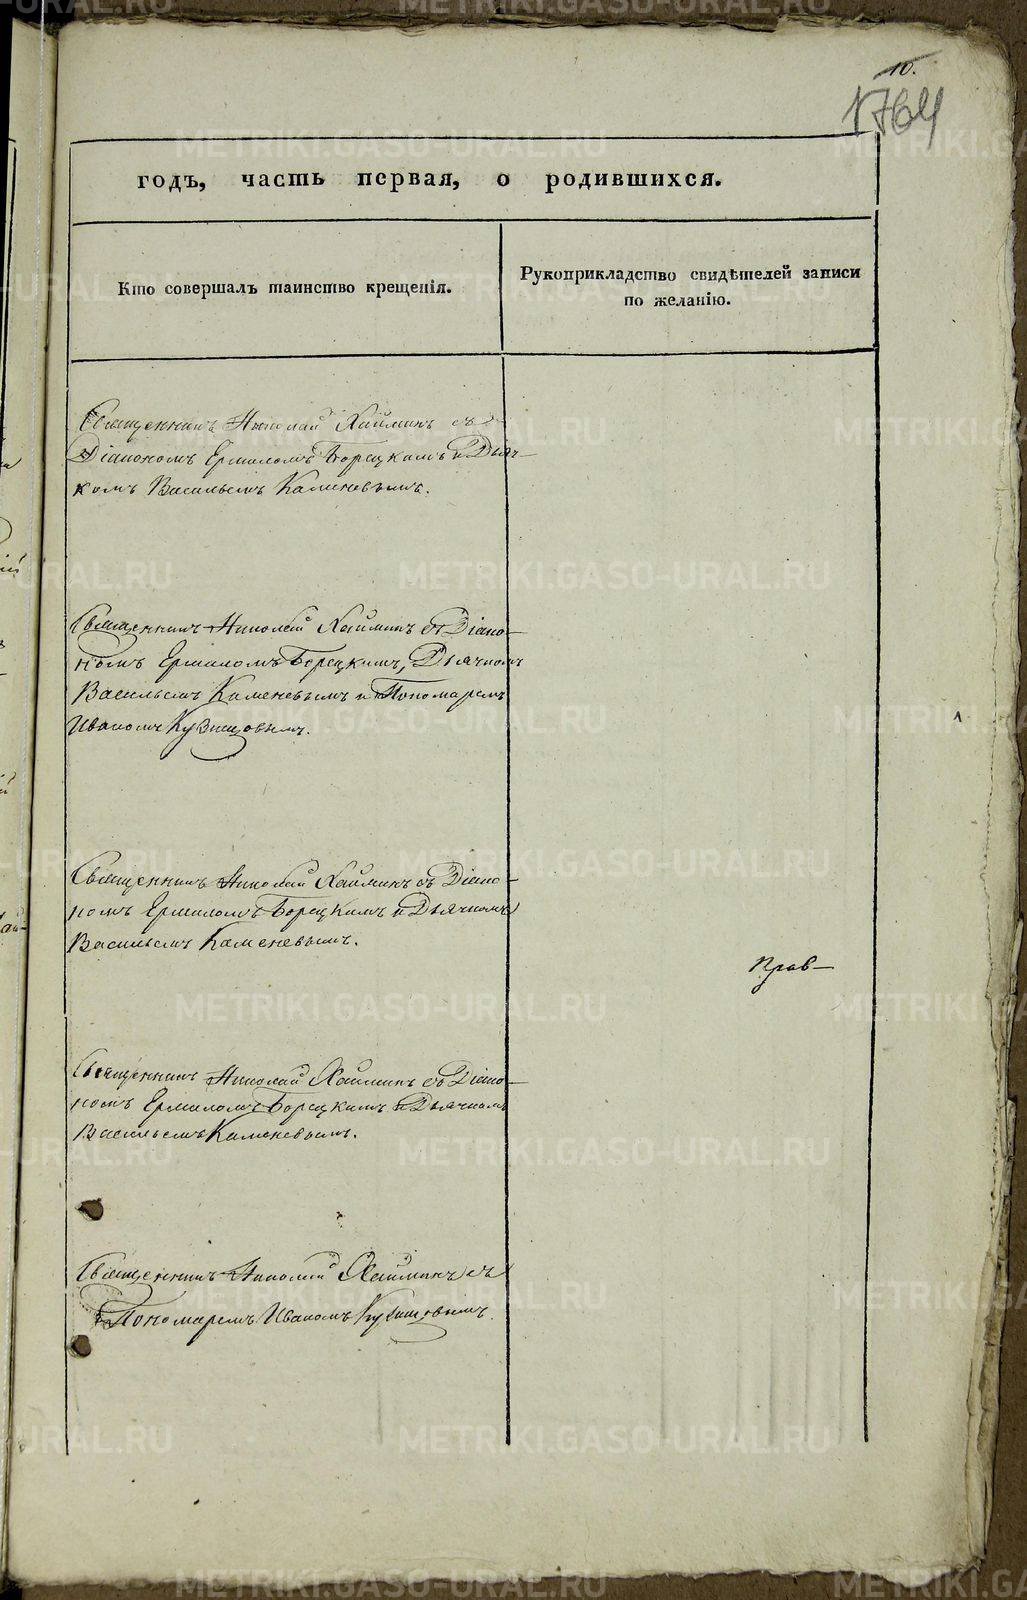 10.
1764
годъ, часть первая, о родившихся.
Кто совершалъ таинство крещенія.
Рукоприкладство свидѣтелей записи
по желанію.
Священникъ Николай Хайминъ съ
Діакономъ Ермиломъ Борецкимъ и Дьяч-
комъ Васильемъ Каменевымъ.
Священникъ Николай Хайминъ съ Діако-
номъ Ермиломъ Борецкимъ, Дьячкомъ
Васильемъ Каменевымъ и Пономаремъ
Иваномъ Кузнецовымъ.
Священникъ Николай Хайминъ съ Діако-
номъ Ермиломъ Борецкимъ и Дьячкомъ
Васильемъ Каменевымъ.
Прав-
Священникъ Николай Хайминъ съ Діако-
номъ Ермиломъ Борецкимъ и Дьячкомъ
Васильемъ Каменевымъ.
Священникъ Николай Хайминъ съ
Пономаремъ Иваномъ Кузнецовымъ.
METRIKI.GASO-URAL.RU